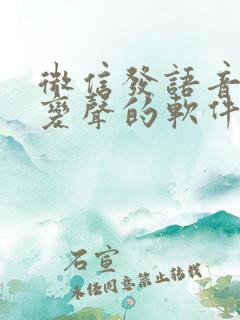 微信發語音
變聲的軟件
石宣
未經同意禁止轉載